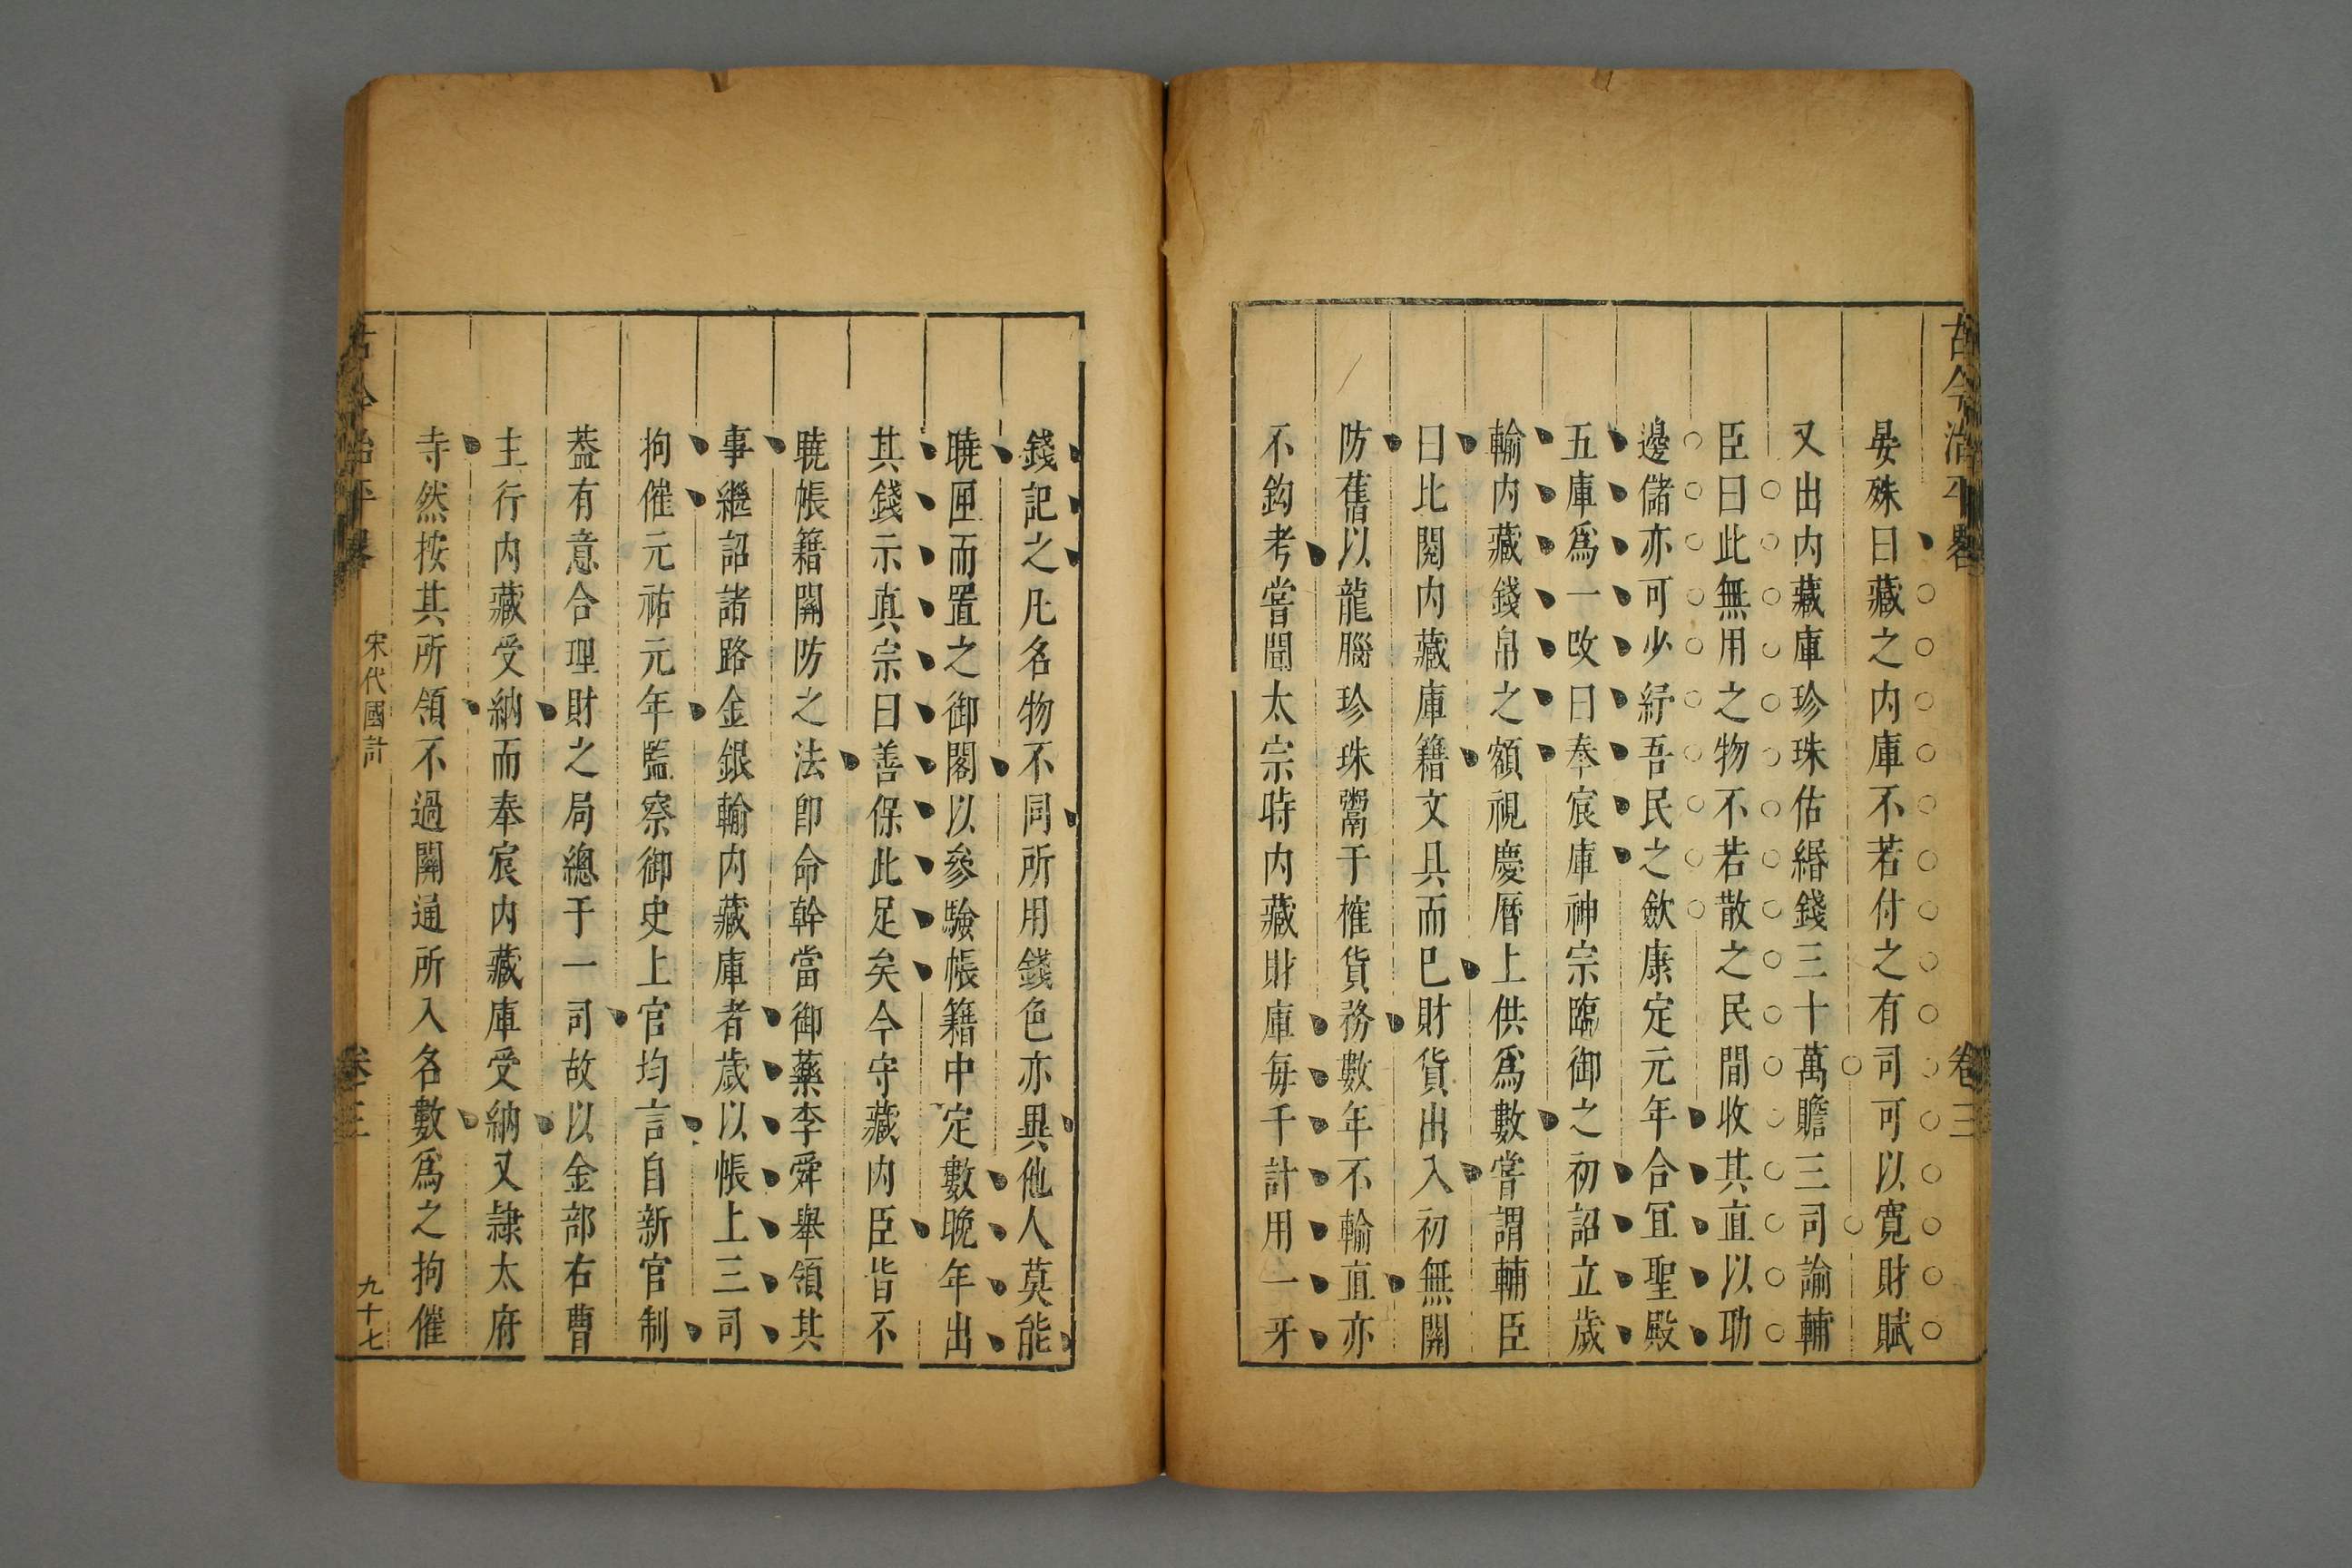 古今治平畧
卷三
晏殊曰藏之内庫不若付之有司可以寬財賦
又出内藏庫珍珠估緡錢三十萬贍三司諭輔
臣曰此無用之物不若散之民間收其直以助
邊儲亦可少紓吾民之歛康定元年合冝聖殿
五庫爲一改曰奉宸庫神宗臨御之初詔立歲
輸内藏錢帛之額視慶曆上供爲數嘗謂輔臣
曰比閱内藏庫籍文具而已財貨出入初無關
防舊以龍腦珍珠鬻于榷貨務數年不輸直亦
不鈎考嘗聞太宗時内藏財庫每千計用一牙
錢記之凡名物不同所用錢色亦異他人莫能
曉匣而置之御閣以參驗帳籍中定數晚年出
其錢示真宗曰善保此足矣今守藏内臣皆不
曉帳籍關防之法卽命幹當御藥李舜舉領其
事繼詔諸路金銀輸内藏庫者歲以帳上三司
拘催元祐元年監察御史上官均言自新官制
葢有意合理財之局總于一司故以金部右曹
主行内藏受納而奉宸内藏庫受納又隷太府
寺然按其所領不過關通所入名數爲之拘催
古今治平畧
宋代國計
卷三
九十七